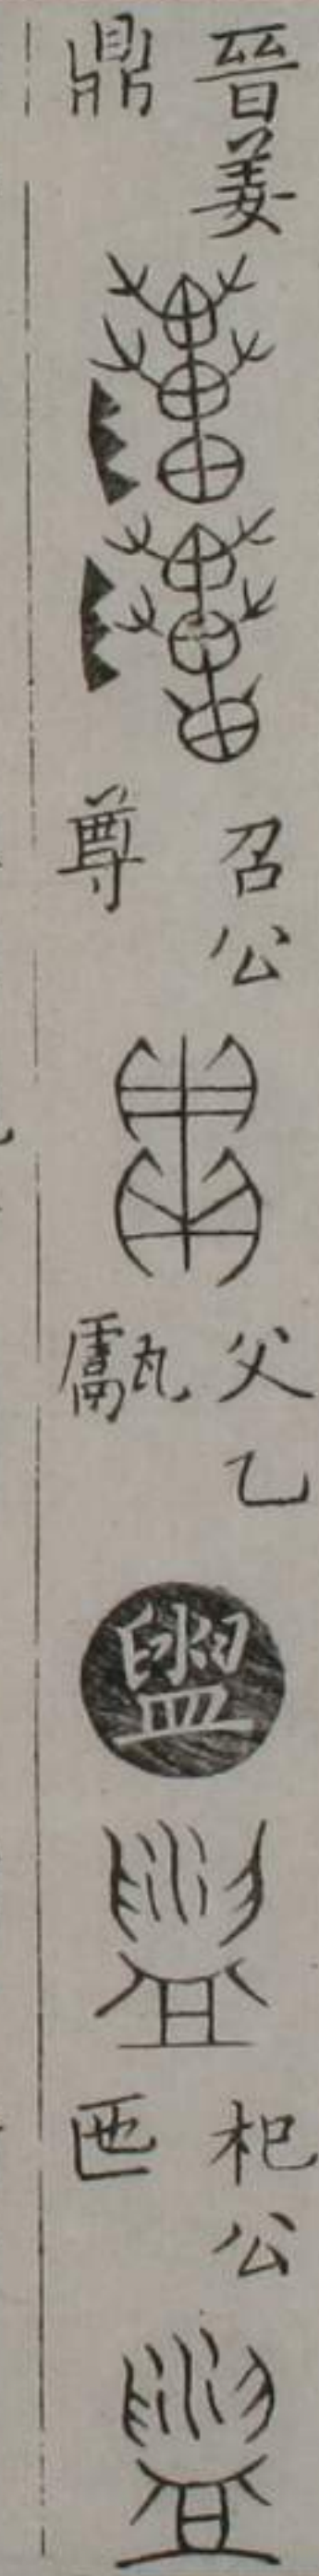 晉姜
鼎
召公
尊
父乙
甗
盥
盥
杞公
匜
盥